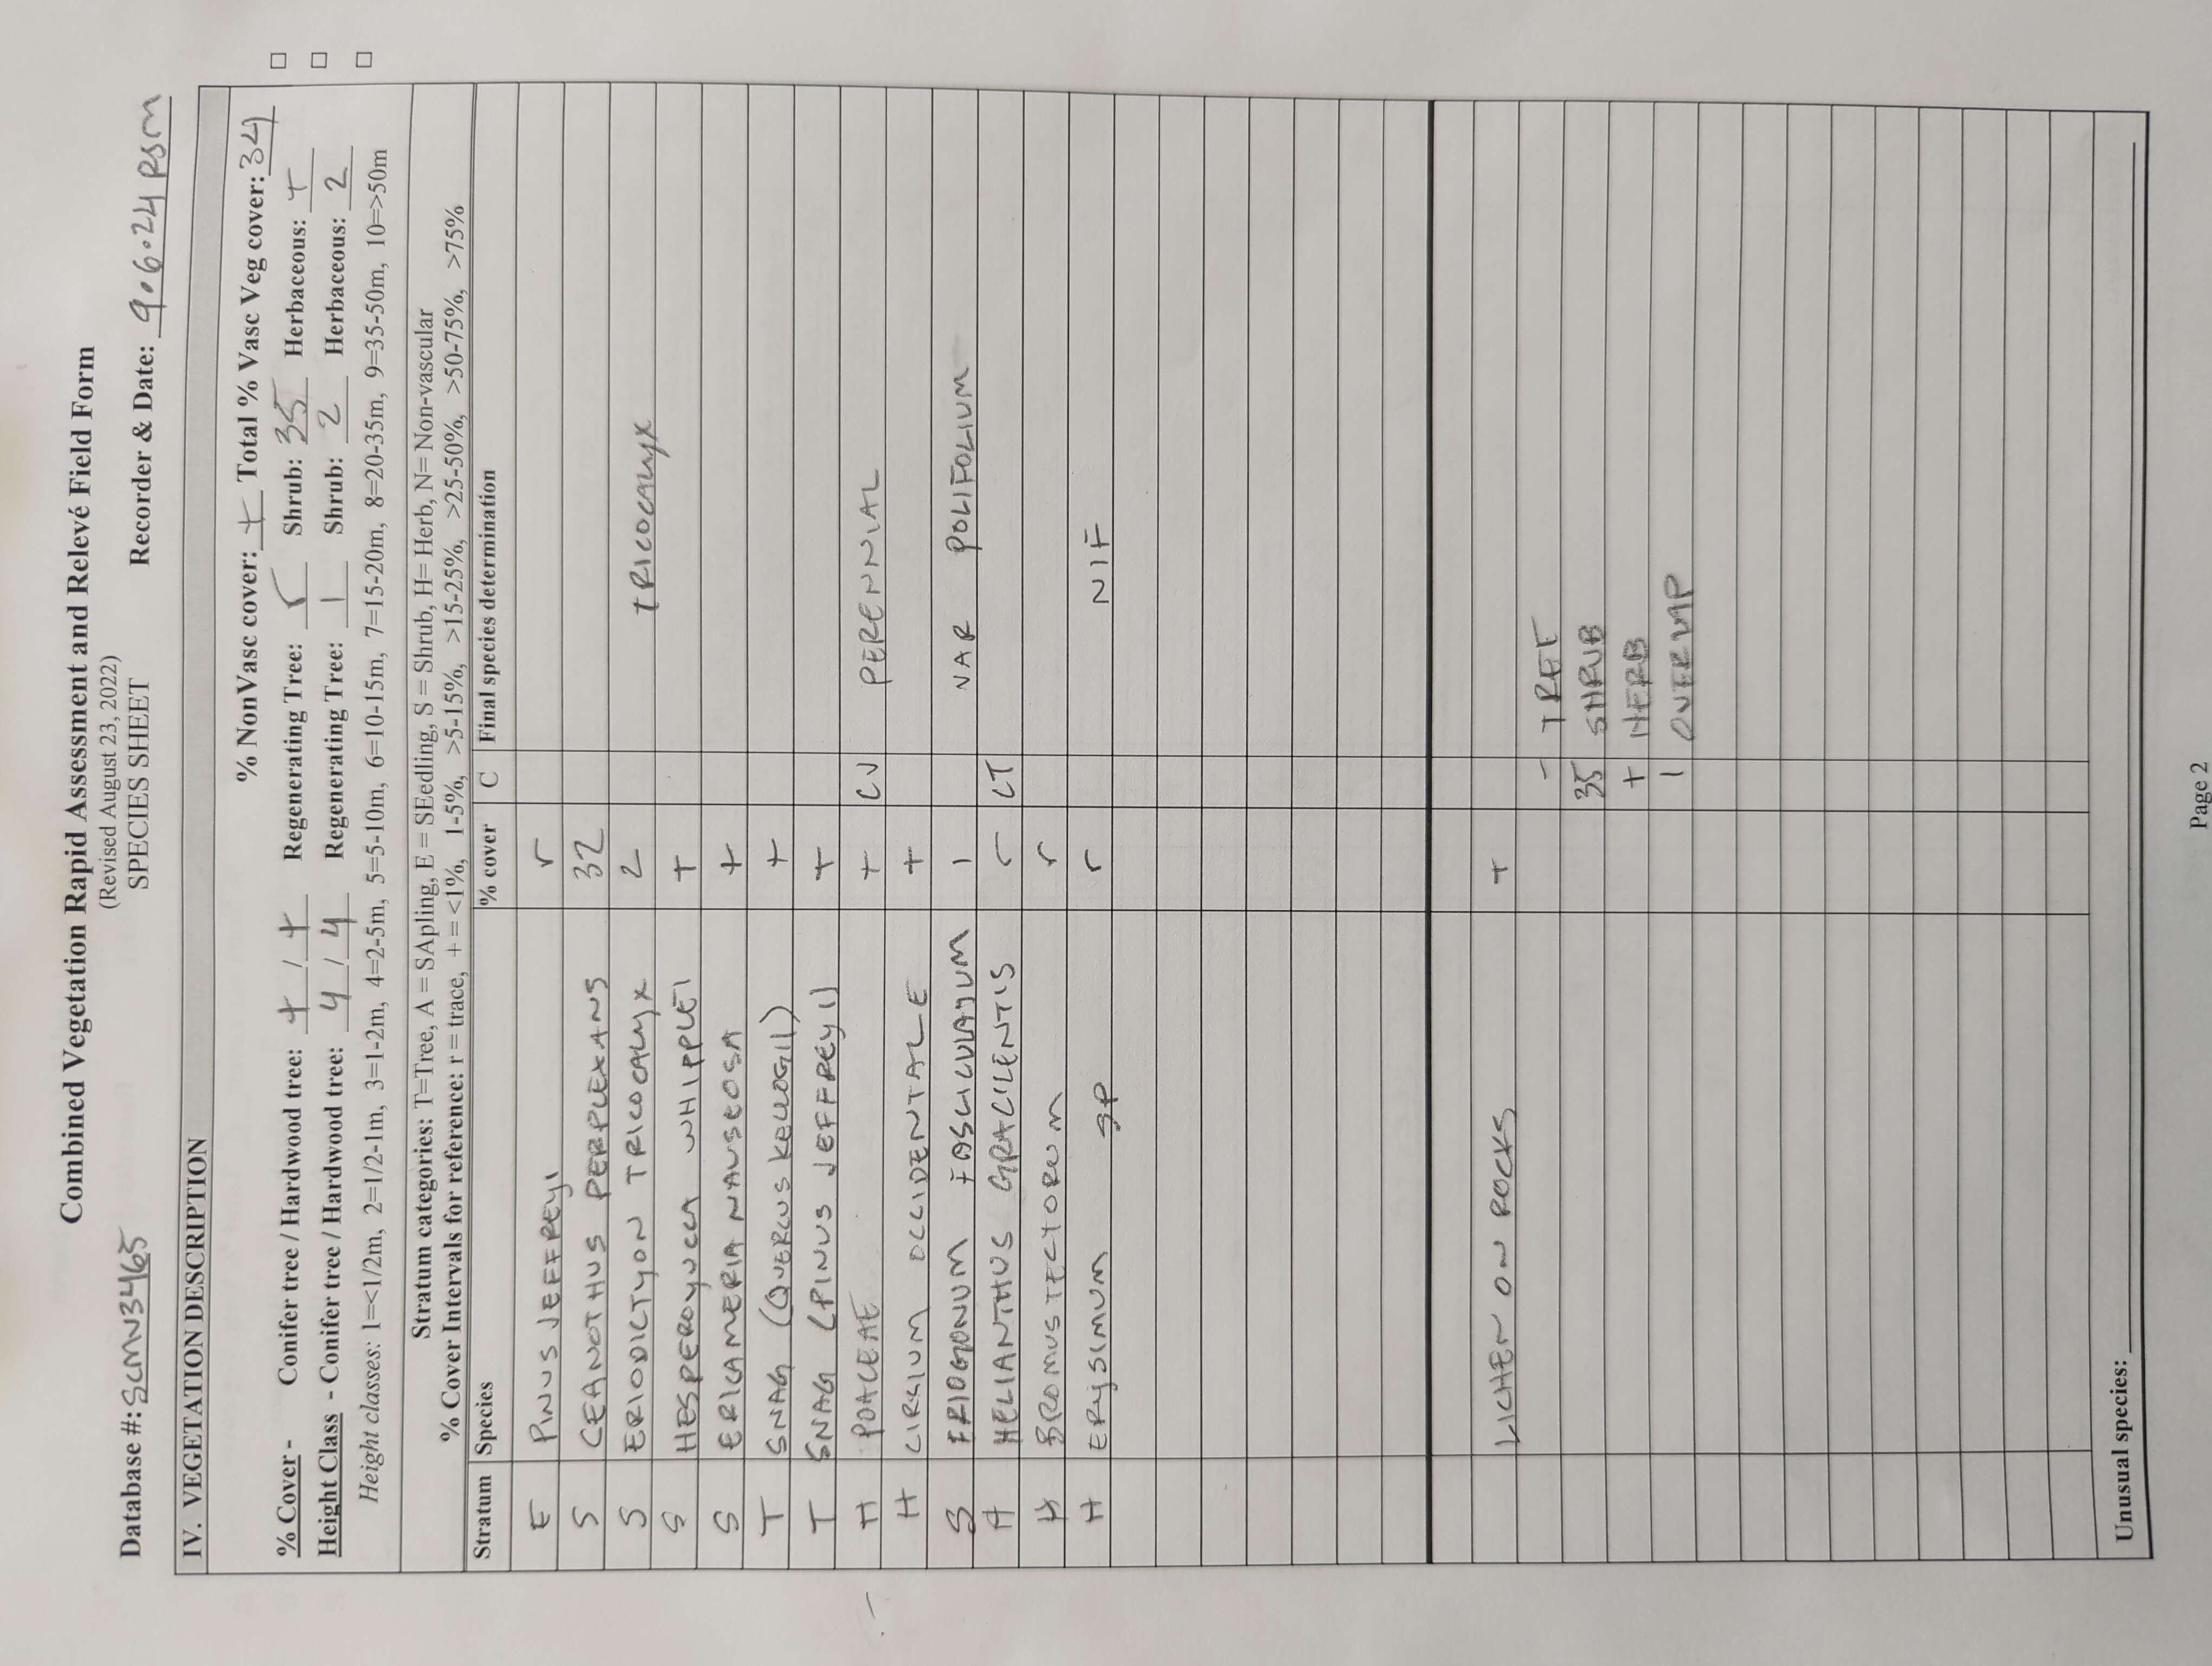 Combined Vegetation Rapid Assessment and Relevé Field Form
(Revised August 23, 2022)
Database #: SCMN34465 SPECIES SHEET Recorder & Date: 9.6.24 RSM
IV. VEGETATION DESCRIPTION
% NonVasc cover: + Total % Vasc Veg cover: 34
% Cover - Conifer tree / Hardwood tree: + / + Regenerating Tree: r Shrub: 35 Herbaceous: +
Height Class - Conifer tree / Hardwood tree: 4 / 4 Regenerating Tree: 1 Shrub: 2 Herbaceous: 2
Height classes: 1=<1/2m, 2=1/2-1m, 3=1-2m, 4=2-5m, 5=5-10m, 6=10-15m, 7=15-20m, 8=20-35m, 9=35-50m, 10=>50m
Stratum categories: T=Tree, A = SApling, E = SEedling, S = Shrub, H= Herb, N= Non-vascular
% Cover Intervals for reference: r = trace, + = <1%, 1-5%, >5-15%, >15-25%, >25-50%, >50-75%, >75%
Stratum Species % cover C Final species determination
E PINUS JEFFREYI r
S CEANOTHUS PERPLEXANS 32
S ERIODICTYON TRICOCALYX 2 TRICOCALYX
S HESPEROYUCCA WHIPPLEI +
S ERICAMERIA NAUSEOSA +
T SNAG (QUERCUS KELLOGII) +
T SNAG (PINUS JEFFREYI) +
H POACEAE + CV PERENNIAL
H CIRSIUM OCCIDENTALE +
S ERIOGONUM FASCICULATUM 1 VAR POLIFOLIUM
H HELIANTHUS GRACILENTIS r CT
H BROMUS TECTORUM r
H ERYSIMUM SP r NIF
LICHEN ON ROCKS +
- TREE
35 SHRUB
+ HERB
1 OVERLAP
Unusual species:
Page 2